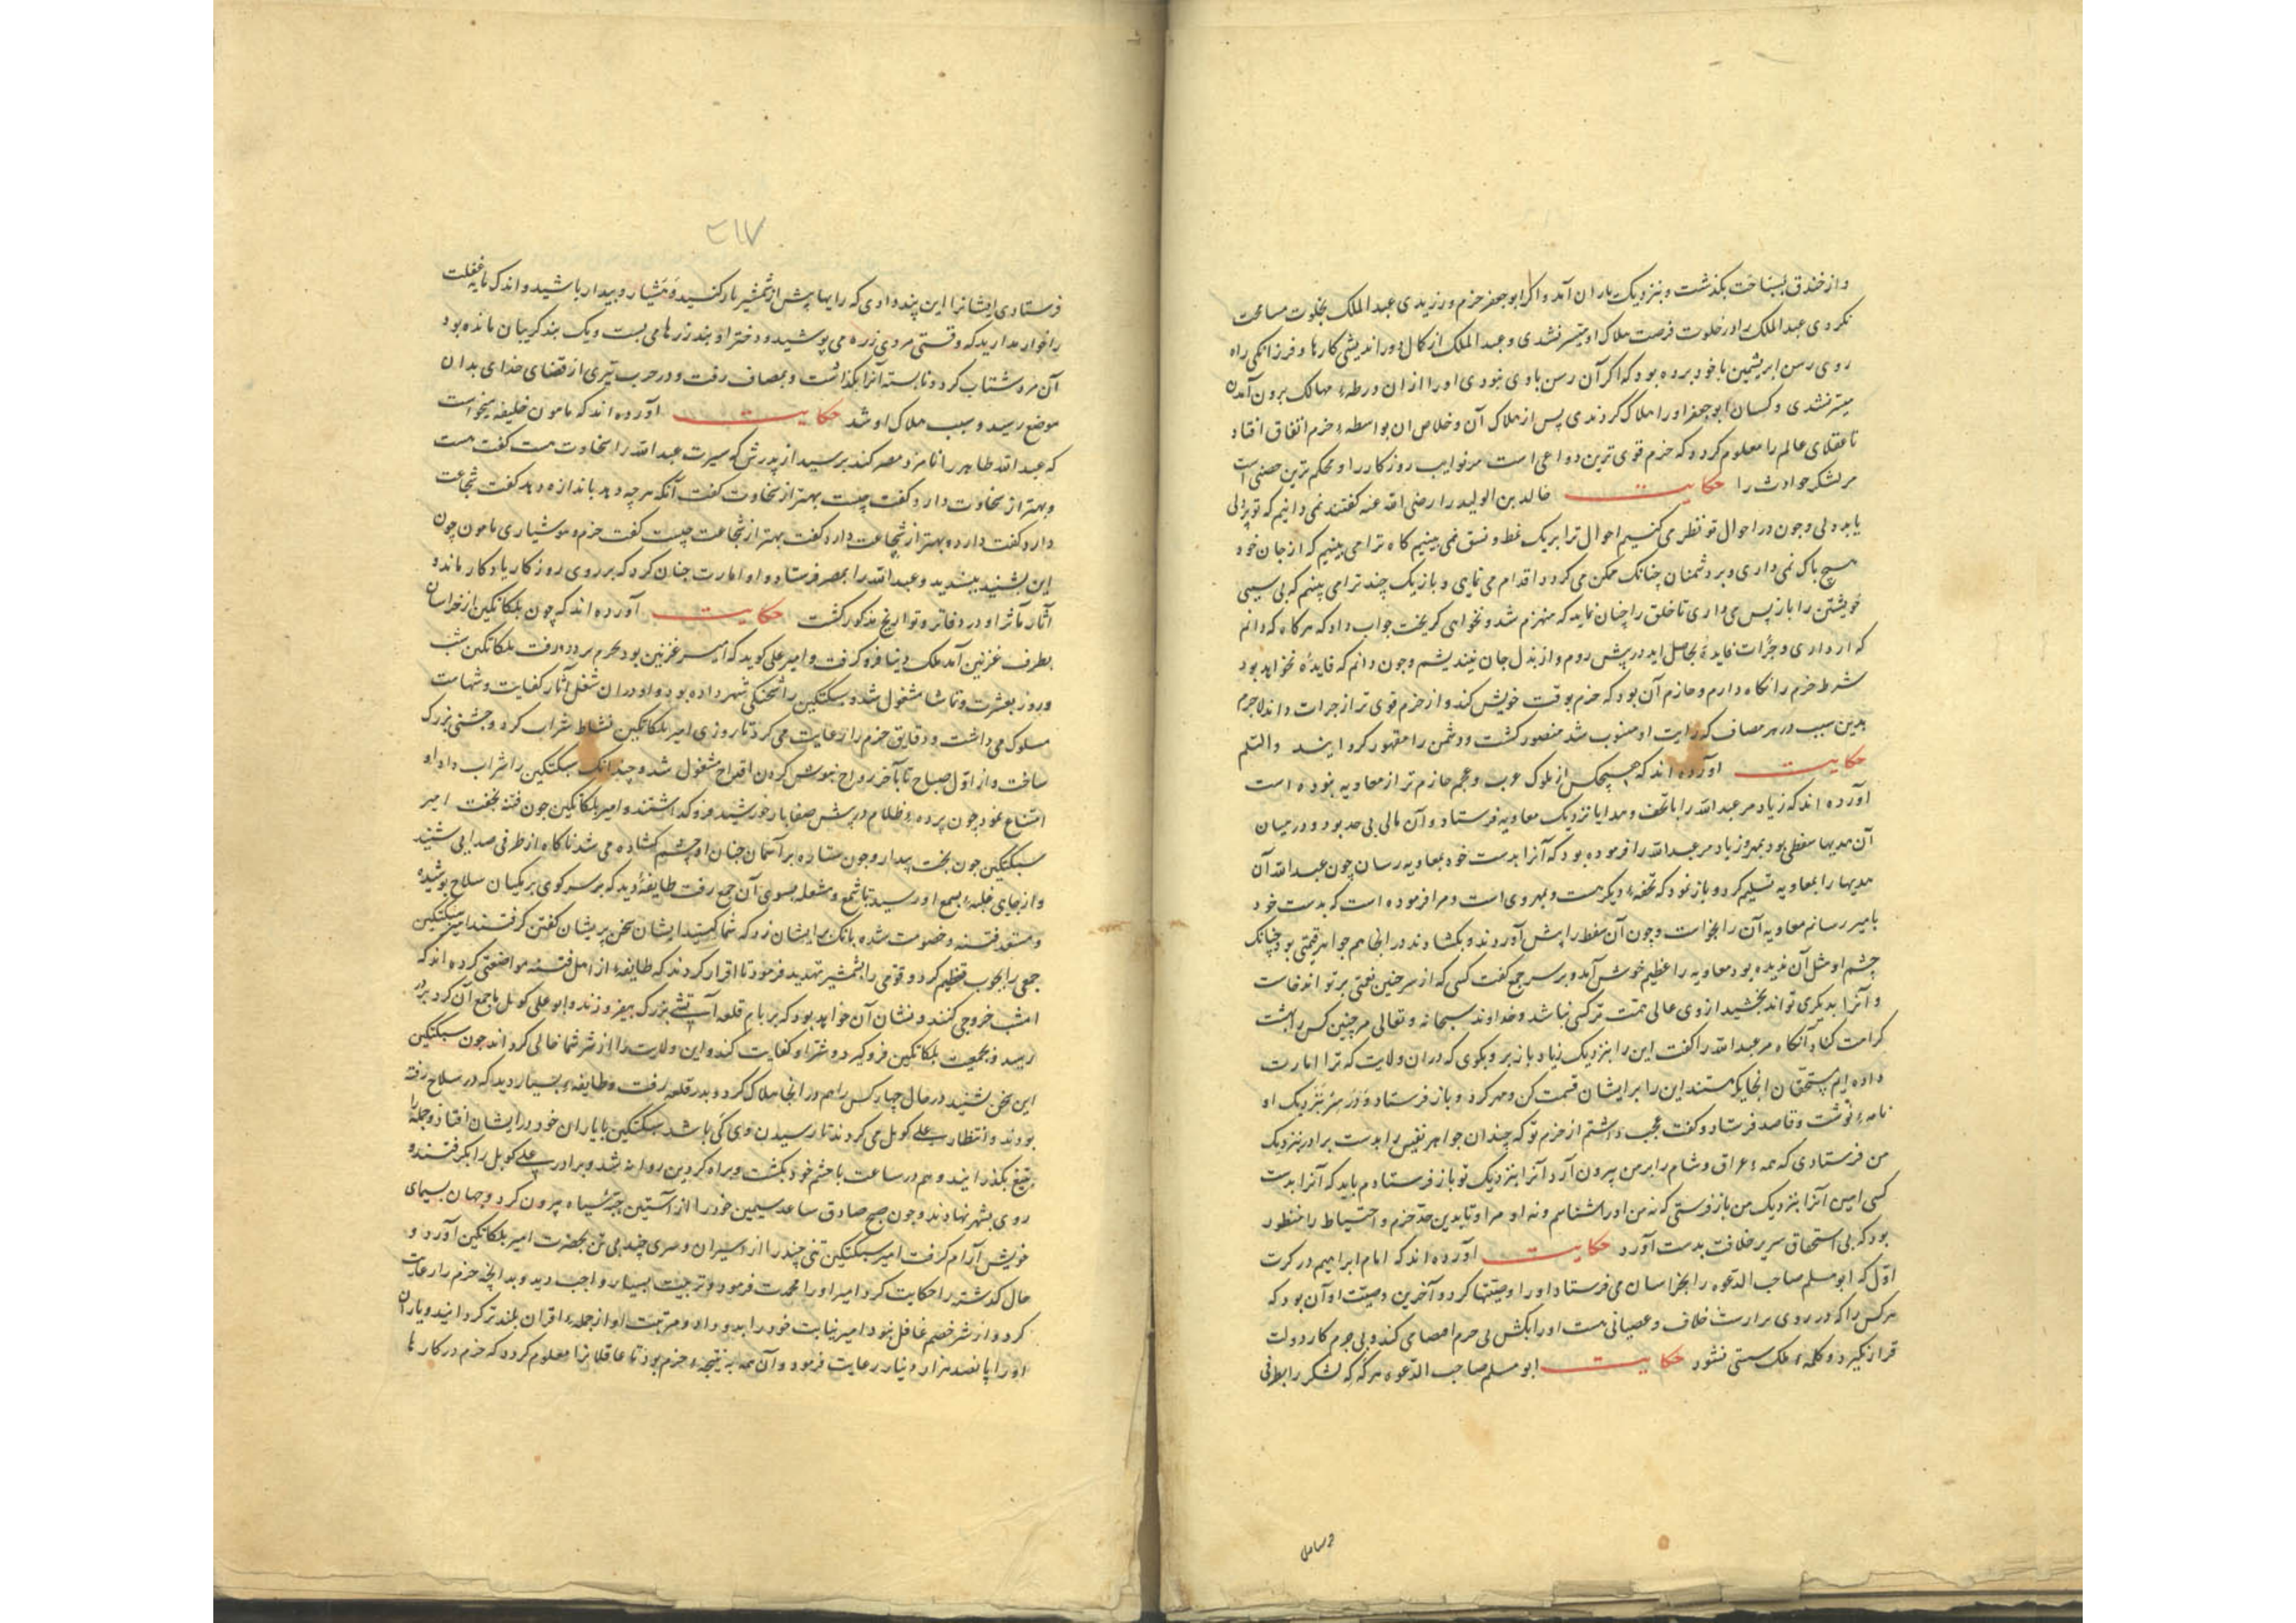 و از خندق بسباحت بگذشت و بنزدیک یاران آمد و اگر ابو جعفر حزم ورزیدی عبد الملک بخلوت مسامحت
نکردی عبد الملک را در خلوت فرصت هلاک او میسر نشدی و عبد الملک از کمال دور اندیشی کارها و فرزانکی راه
روی رسن ابریشمین با خود برده بود که اکر آن رسن با وی نبودی او را از ان ورطهٔ مهالک برون آمدن
میسر نشدی و کسان ابو جعفر او را هلاک کردندی پس از هلاک آن و خلاص ان بواسطهٔ حزم اتفاق افتاد
تا عقلای عالم را معلوم کردد که حزم قوی ترین دواعی است مر نوایب روزکار را و محکم ترین حصنی است
مر لشکر حوادث را حکایت خالد بن الولید را رضی الله عنه کفتند نمی دانیم که تو پردلی
یا بددلی و چون در احوال تو نظر می کنیم احوال ترا بر یک نمط و نسق نمی بینیم کاه ترا می بینیم که از جان خود
هیچ باک نمی داری و بر دشمنان چنانک ممکن می کردد اقدام می نمایی و باز یک چند ترا می بینم که بی سببی
خویشتن را باز پس می داری تا خلق را چنان نماید که منهزم شد و نخواهی کریخت جواب داد که هرکاه که دانم
که از داری و جرات فایدهٔ بحاصل اید در پیش روم و از بذل جان نیندیشم و چون دانم که فایدهٔ نخواهد بود
شرط حزم را نکاه دارم و حازم آن بود که حزم بوقت خویش کند و از حزم قوی تر از جرات داند لاجرم
بدین سبب در هر مصاف که رایت او منصوب شد منصور کشت و دشمن را مقهور کردانید والسلم
حکایت آورده اند که هیچکس از ملوک عرب و عجم حازم تر از معاویه نبوده است
آورده اند که زیاد مر عبد الله را با تحف و هدایا نزدیک معاویه فرستاد و آن مالی بی حد بود و در میان
آن هدیها سفطی بود بمهر و زیاد مر عبد الله را فرموده بود که آنرا بدست خود بمعاویه رسان چون عبد الله آن
هدیها را بمعاویه تسلیم کرد و باز نمود که تحفهٔ دیکر هست و بمهر وی است و مرا فرموده است که بدست خود
بامیر رسانم معاویه آن را بخواست و چون آن سفط را پیش آوردند و بکشادند در انجا هم جواهر قیمتی بود چنانک
چشم او مثل آن ندیده بود معاویه را عظیم خوش آمد و بر سر جمع کفت کسی که از سر چنین نعمتی بر تواند خاست
و آنرا بدیکری تواند بخشید از وی عالی همت تر کسی نباشد و خداوند سبحانه و تعالی هر چنین کس را بهشت
کرامت کناد آنکاه مر عبد الله را کفت این را بنزدیک زیاد باز بر و بکوی که در ان ولایت که ترا امارت
داده ایم مستحقان انجا یک هستند این را بر ایشان قسمت کن و مهر کرد و باز فرستاد و در سر بنزدیک او
نامهٔ نوشت و قاصد فرستاد و کفت عجب داشتم از حزم تو که چندان جواهر نفیس را بدست برادر بنزدیک
من فرستادی که همهٔ عراق و شام را بر من بیرون آرد آنرا بنزدیک تو باز فرستادم باید که آنرا بدست
کسی امین آنرا بنزدیک من باز فرستی که نه من او را شناسم و نه او مرا و تا بدین حد حزم و احتیاط را منظور
بود که بی استحقاق سریر خلافت بدست آورد حکایت آورده اند که امام ابراهیم در کرت
اول که ابو مسلم صاحب الدعوه را بخراسان می فرستاد او را وصیتها کرد و آخرین وصیت او آن بود که
هر کس را که در روی برارت خلاف و عصیانی هست او را بکش بی حرم امضا می کند و بی جرم کار دولت
قرار نکیرد و کلمهٔ ملک سستی نشود حکایت ابو مسلم صاحب الدعوه هرکه که لشکر را بطرفی
فرستادی
۳۱۷
فرستادی ایشانرا این پند دادی که رایها پیش از شمشیر بار کنید و هشیار و بیدار باشید و اندک مایه غفلت
را خوار مدارید که وقتی مردی زره می پوشید و دختر او بند زرها می بست و یک بند کریبان مانده بود
آن مرد شتاب کرد و نا بسته آنرا بکذاشت و بمصاف رفت و در حرب تیری از قضای خدای بدان
موضع رسید و سبب هلاک او شد حکایت آورده اند که مامون خلیفه میخواست
که عبد الله طاهر را نامزد مصر کند برسید از پدرش که سیرت عبد الله را سخاوت هست کفت هست
و بهتر از سخاوت دارد کفت چیست بهتر از سخاوت کفت آنکه هر چه دهد باندازه دهد کفت شجاعت
دارد کفت دارد و بهتر از شجاعت دارد کفت بهتر از شجاعت چیست کفت حزم و هوشیاری مامون چون
این بشنید بپسندید و عبد الله را بمصر فرستاد و او امارت چنان کرد که بر روی روزکار یادکار ماند و
آثار مآثر او در دفاتر و تواریخ مذکور کشت حکایت آورده اند که چون بلکاتکین از خراسان
بطرف غزنین آمد ملک دنیا فرو کرفت و امیر علی کوید که امیر غزنین بود محرم بر در رفت بلکاتکین شب
و روز بعشرت و تماشا مشغول شد و سبکتکین را شحنکی شهر داده بود و او در ان شغل آثار کفایت و شهامت
مسلوک می داشت و دقایق حزم را رعایت می کرد تا روزی امیر بلکاتکین نشاط شراب کرد و جشنی بزرک
ساخت و از اول صباح تا بآخر رواح بنوش کردن اقداح مشغول شد و چندانک سبکتکین را شراب داد او
امتناع نمود چون پردهٔ ظلام در پیش صفا بار خورشید فرو کذاشتند و امیر بلکاتکین چون فتنه بخفت امیر
سبکتکین چون بخت بیدار و چون ستاره بر آسمان چنان او چشم کشاده می شد ناکاه از طرفی صدایی شنید
و از جای غلبهٔ بسمع او رسید با شمع و مشعله بسوی آن جمع رفت طایفهٔ دید که بر سر کوی بر یکسان سلاح پوشیده
و مستعد فتنه و خصومت شده بانک بر ایشان زد که شما کیستید ایشان سخن پریشان کفتن کرفتند امیر سبکتکین
جمعی را بچوب تعظیم کرد و قومی را بشمشیر تهدید فرمود تا اقرار کردند که طایفهٔ از اهل فتنه مواضعتی کرده اند که
امشب خروجی کنند و نشان آن خواهد بود که بر بام قلعه آتشی بزرک بیفروزند و ابو علی کوبل با جمع آن کرد بر در
رسید و بجمعیت بلکاتکین فرو کیرد و شر او کفایت کند و این ولایت را از شر شما خالی کرداند چون سبکتکین
این سخن بشنید در حال چهار کس را هم در انجا هلاک کرد و بدر قلعه رفت و طایفهٔ بسیار دید که در سلاح رفته
بودند و انتظار بو علی کوبل می کردند تا رسیدن وی کی باشد سبکتکین با یاران خود در ایشان افتاد و جمله را
بتیغ بکذرانید و هم در ساعت با حشم خود بکشت و براه کردیز روانه شد و برادر بو علی کوبل را بکرفتند و
روی بشهر نهادند و چون صبح صادق ساعد سیمین خود را از آستین جبهٔ سیاه بیرون کرد و جهان بسیمای
خویش آرام کرفت امیر سبکتکین تنی چند را از اسیران و سری چند بی تن بحضرت امیر بلکاتکین آورد و
حال کذشته را حکایت کرد امیر او را محمدت فرمود و تربیت بسیار واجب دید و بدانچه حزم را رعایت
کرد و از شر خصم غافل نبود امیر نیابت خود را بدو داد و مرتبت او از جملهٔ اقران بلندتر کردانید و یاران
او را پانصد هزار دینار رعایت فرمود و آن همه به نتیجهٔ حزم بود تا عاقلانرا معلوم کردد که حزم در کارها